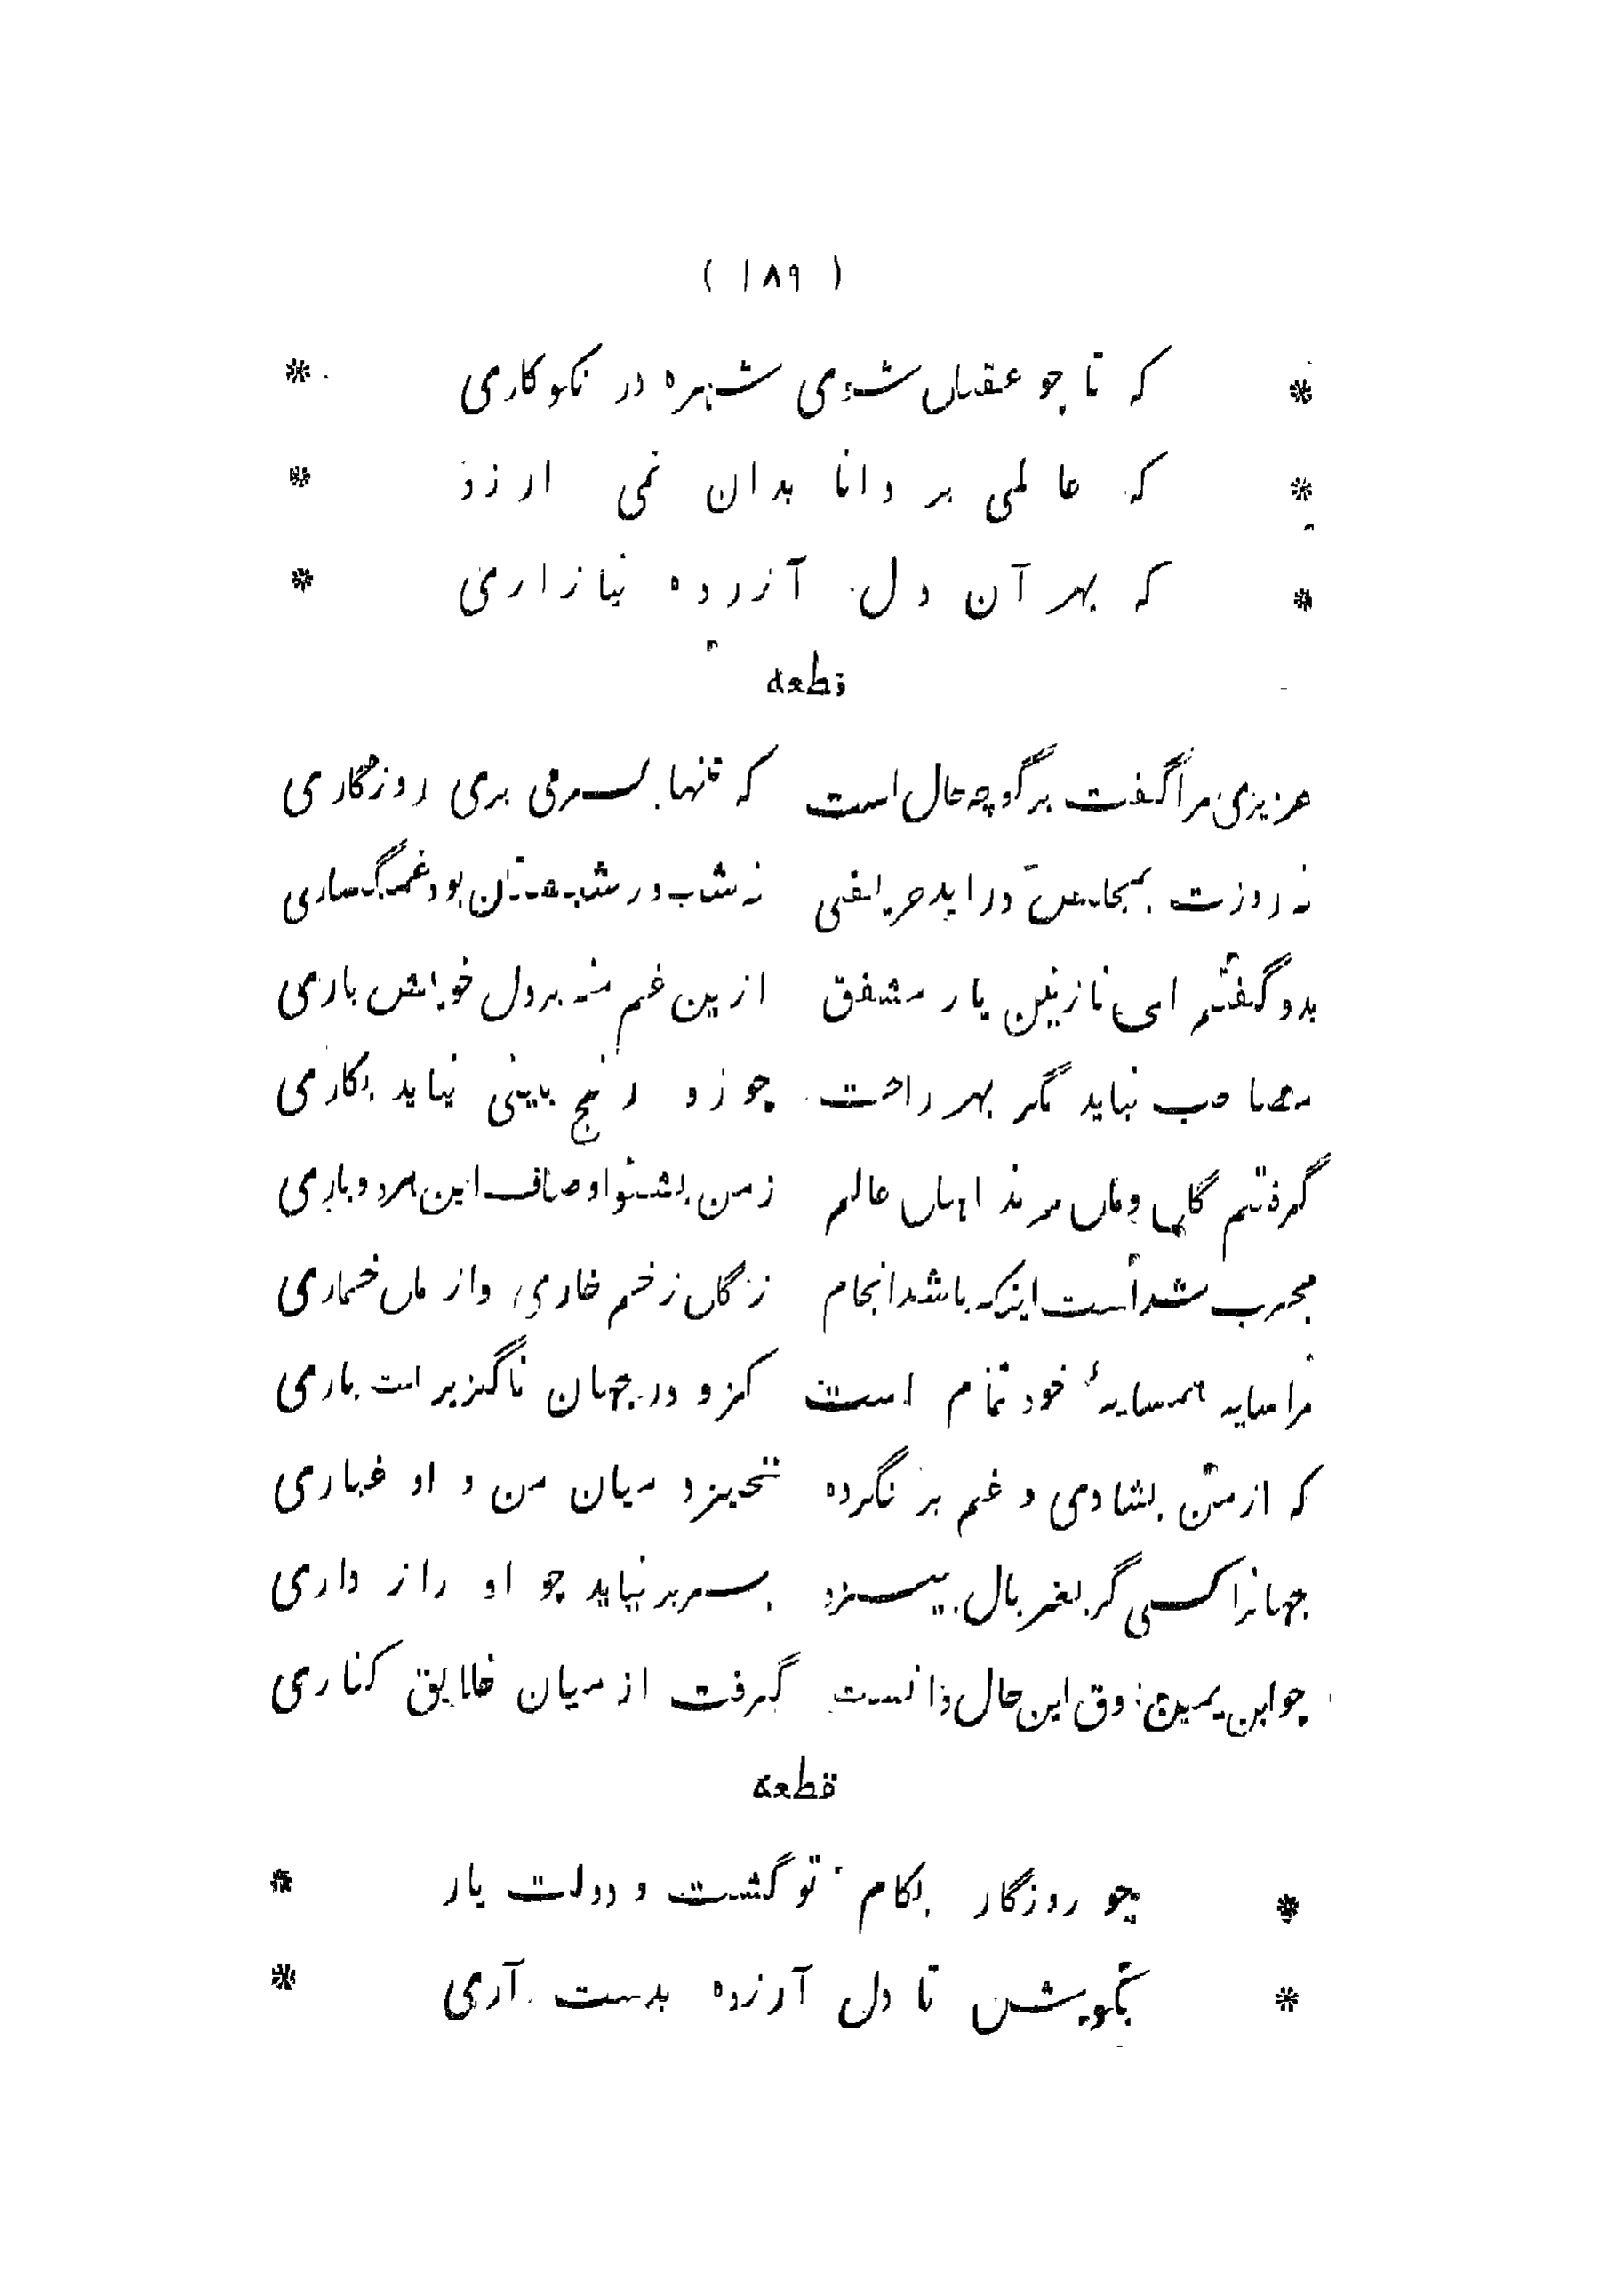 ( ۱۸۹ )
* که تا چو عقل شوی شهره در نکوکاری *
* که عالمی بر دانا بدان نمی ارزد *
* که بهر آن دل آزرده نیازاری *
قطعه
عزیزی مرا گفت برگو چه حال است که تنها بسر می بری روزگاری
نه روزت بمجلس در اید حریفی نه شب در شبستان بود غمگساری
بدو گفتم ای نازنین یار مشفق ازین غم منه بر دل خویش باری
مصاحب نباید مگر بهر راحت چو زو رنج بینی نیاید بکاری
گرفتم گل و مل سرند اهل عالم ز من بشنو اوصاف این هر دو باری
مجرب شد است اینکه باشد انجام ز گل زخم خاری و از مل خماری
مرا سایه همسایهٔ خود تمام است کزو در جهان ناگزیر است باری
که از من بشادی و غم بر نگردد نخیزد میان من و او غباری
جهانرا کسی گر بغربال بیزد بسر بر نیاید چو او راز داری
چو ابن یمین ذوق این حال دانست گرفت از میان خلایق کناری
قطعه
* چو روزگار بکام تو گشت و دولت یار *
* بکوش تا دل آزرده بدست آری *